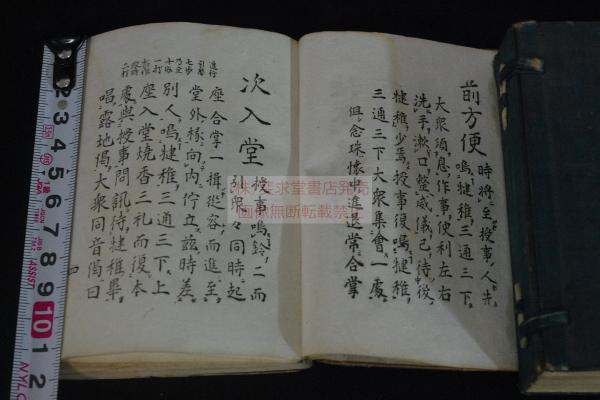 前方便 時將至授事人先
鳴揵稚三通三下
大衆須息作事使利左右
洗手漱口整威儀已侍授
揵稚少焉授事復鳴揵稚
三通三下大衆集會一處
但念珠懷中進退常合掌
次入堂 授事鳴鈴二而
引衆々同時起
座合掌一揖從容而進至
堂外縁向内佇立茲時差
別人鳴揵稚三通三下上
座入堂燒香三礼而復本
處與授事問訊待揵稚畢
唱露地偈大衆同音偈曰
進行
引磬
七步
乃至
十步
一打
二打
株式
求堂書店発売
画像無断転載禁
2 3 4 5 6 7 8 9 10 1 2
NYLC